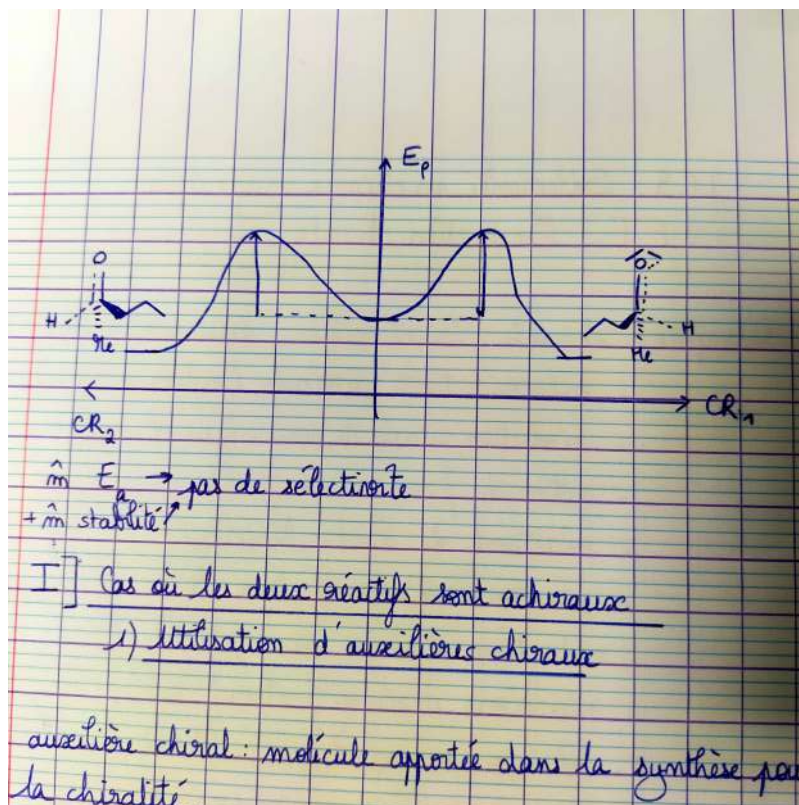 Ep
O
H
Me
O
H
Me
CR2
CR1
m̂ Ea → pas de sélectivité
+ m̂ stabilité
I] Cas où les deux réactifs sont achiraux
1) Utilisation d'auxilières chiraux
auxilière chiral : molécule apportée dans la synthèse pou
la chiralité